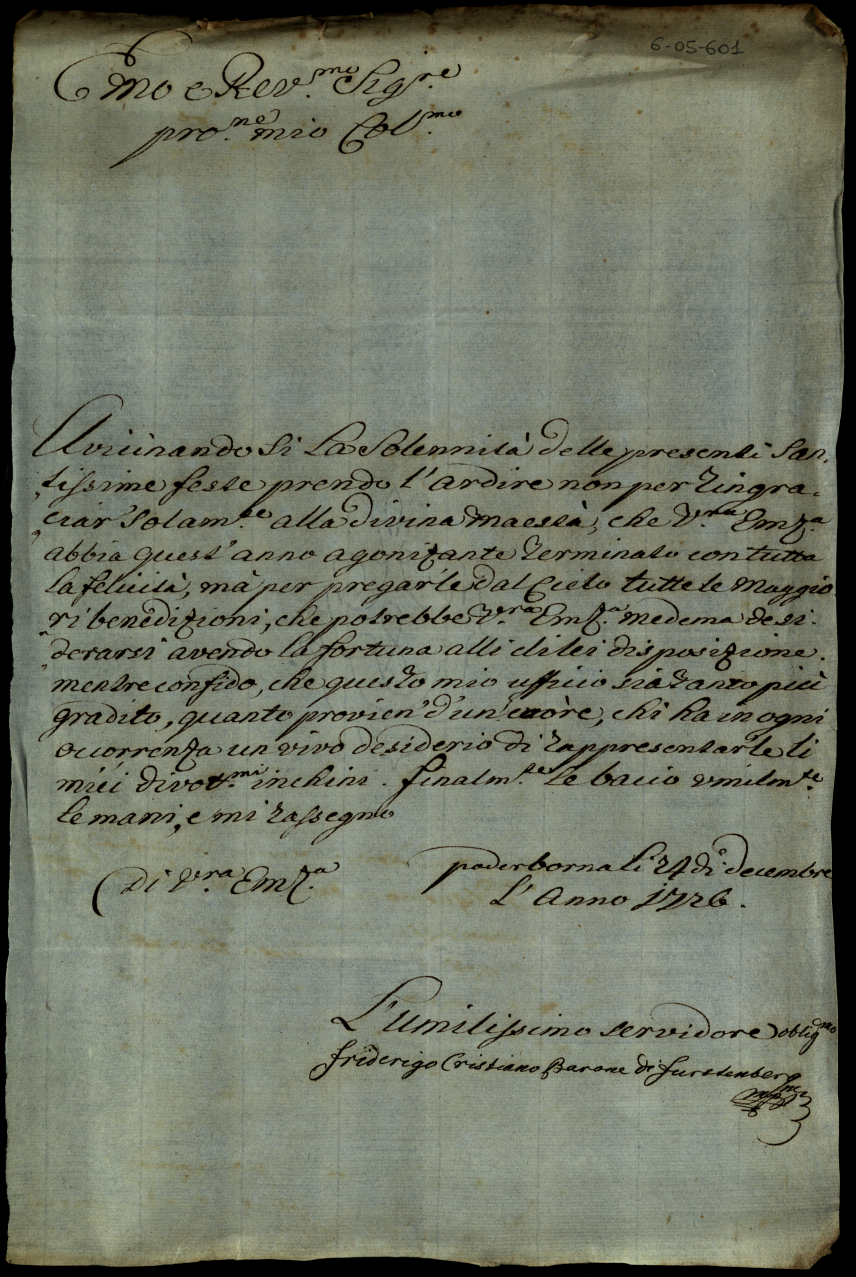 6-05-601
Emo e Rev.mo Sig.re
pro.ne mio Col.mo
Avicinando si La Solennità delle presenti San-
tissime feste prendo l'ardire non per ringra-
ciar' Solam.te alla divina Maestà, che V.ra Emza.
abbia quest' anno agonizante terminato con tutta
la felicità, mà per pregar'le dal Cielo tutte le Maggio
ri benedizioni, che potrebbe V.ra Emz.a medema desi-
derarsi avendo la fortuna alli di lei disposizione.
mentre confido, che questo mio ufficio sia tanto più
gradito, quanto provien' d'un' cuòre, chi ha in ogni
occorrenza un vivo desiderio di rappresentarle li
miei divot.mi inchini. finalm.te le bacio umilm.te
le mani, e mi rassegno
Di V.ra Emz.a
paderborna li 24 di decembre
L'Anno 1726.
L'Umilissimo servidore oblig.mo
friderigo Cristiano Barone di furstenberg
mpp